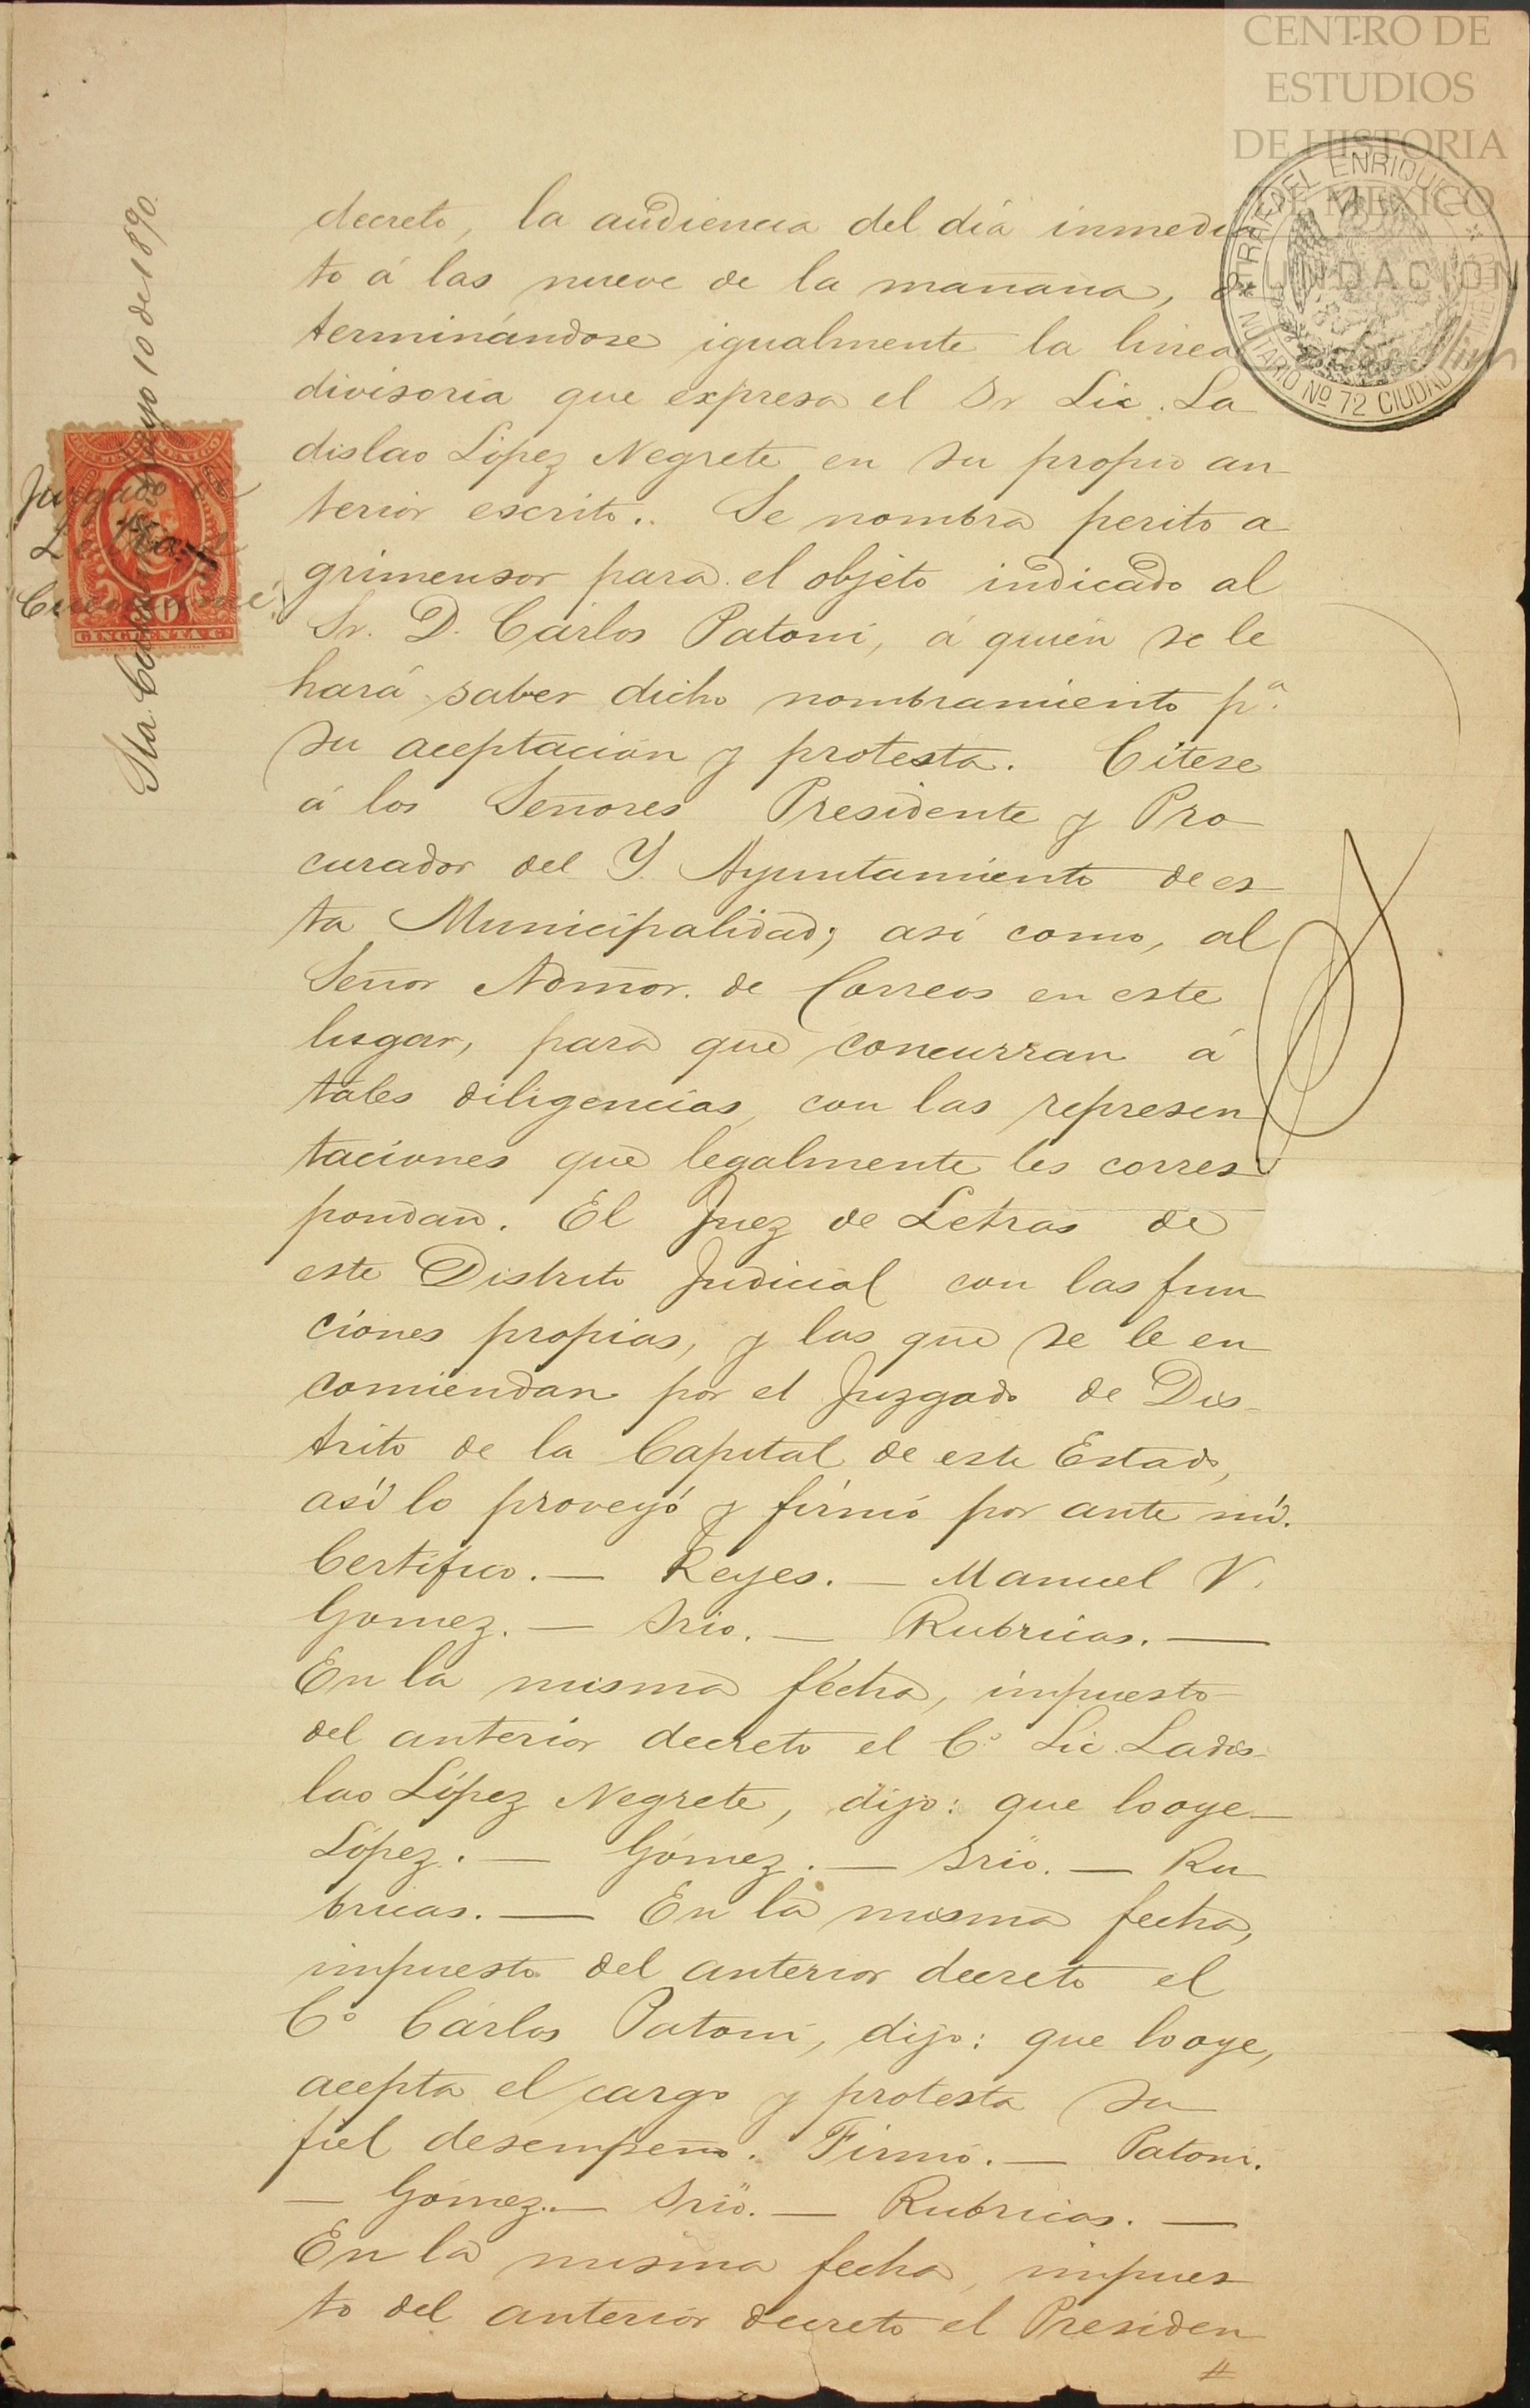 CENTRO DE
ESTUDIOS
DE HISTORIA
DE MEXICO
FUNDACION
RAFAEL ENRIQUE
NOTARIO Nº 72 CIUDAD
Sta. Mayo 10 de 1890.
Juzgado de
Letras
CINCUENTA C.
decreto, la audiencia del día inmedia
to á las nueve de la mañana,
terminándose igualmente la linea
divisoria que expresa el Sr Lic. La
dislao López Negrete en su propio an
terior escrito.. Se nombra perito a
grimensor para el objeto indicado al
Sr. D. Cárlos Patoni, á quien se le
hará saber dicho nombramiento pª.
su aceptación y protesta. Cítese
á los Señores Presidente y Pro
curador del Y. Ayuntamiento de es
ta Municipalidad; así como, al
Señor Admor. de Correos en este
lugar, para que concurran á
tales diligencias, con las represen
taciones que legalmente les corres
pondan. El Juez de Letras de
este Distrito Judicial con las fun
ciones propias, y las que se le en
comiendan por el Juzgado de Dis-
trito de la Capital de este Estado,
así lo proveyó y firmó por ante mí.
Certifico. — Reyes. — Manuel V.
Gomez. — Srio. — Rubricas. —
En la misma fécha, impuesto
del anterior decreto el Cº Lic. Ladis-
lao López Negrete, dijo: que lo oye—
López. — Gómez. — Srio. — Ru
bricas. — En la misma fecha,
impuesto del anterior decreto el
Cº Cárlos Patoni, dijo: que lo oye,
acepta el cargo y protesta su
fiel desempeño. Firmó. — Patoni.
— Gómez. — Srio. — Rubricas. —
En la misma fecha, impues
to del anterior decreto el Presiden
#